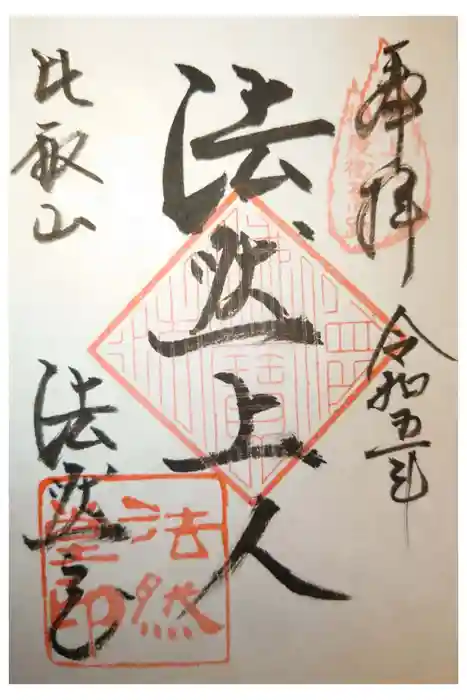 奉拝
令和五年
法然上人
比叡山
法然堂
法然
堂印